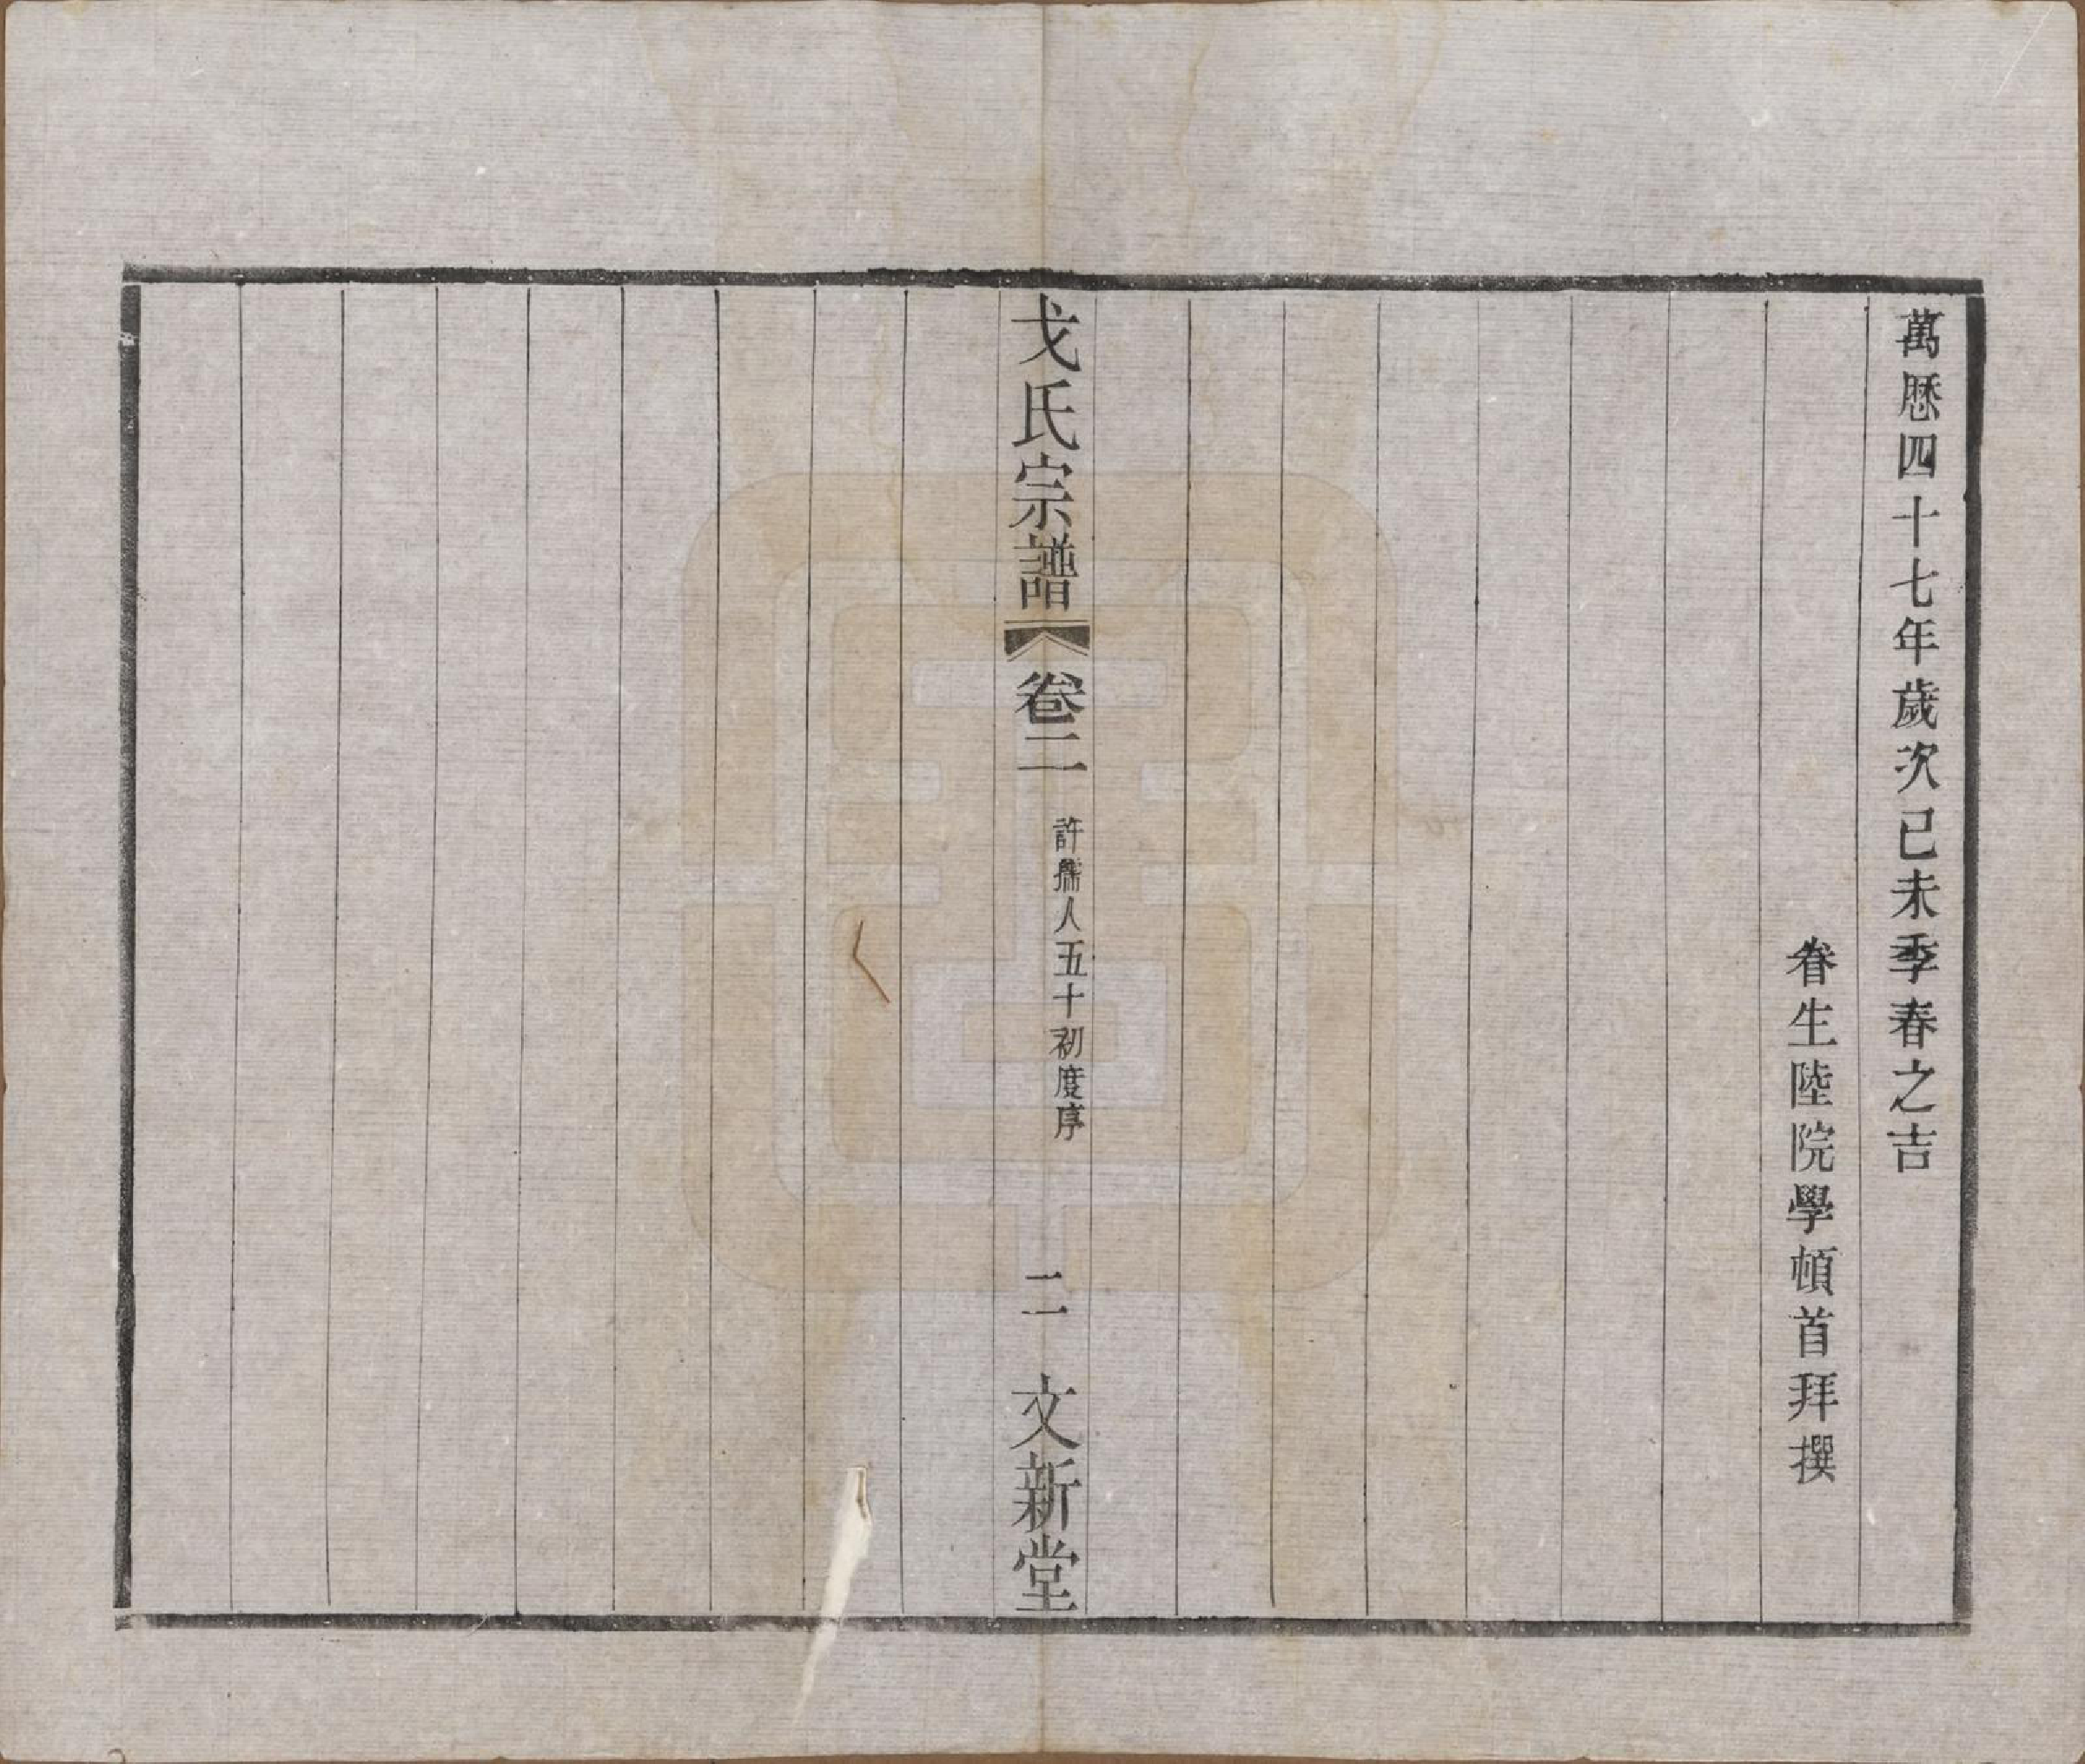 萬厯四十七年歲次己未季春之吉
眷生陸院學頓首拜撰
戈氏宗譜 卷二 許孺人五十初度序 二 文新堂